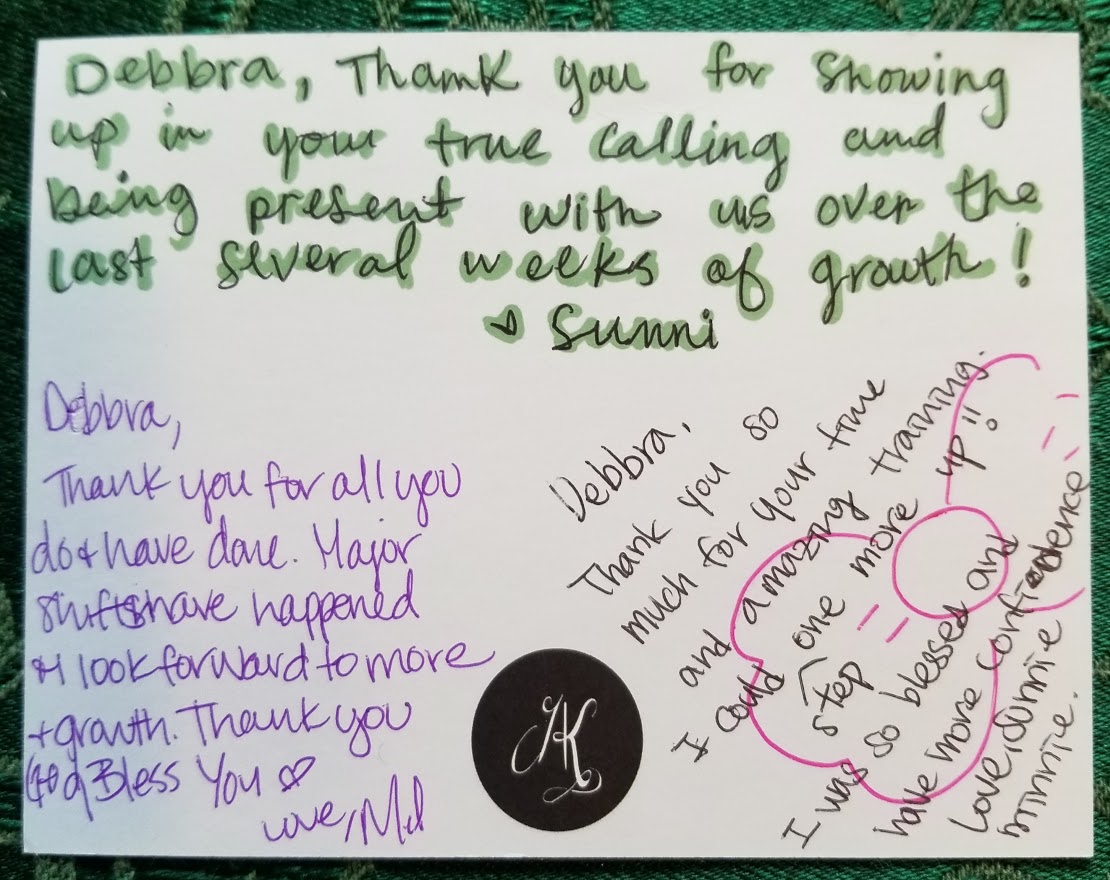 Debbra, Thank you for showing
up in your true calling and
being present with us over the
last several weeks of growth!
Sunni
Debbra,
Thank you for all you
do & have done. Major
shifts have happened
& I look forward to more
+ growth. Thank you
God Bless You
Love, Mel
Debbra,
Thank you so
much for your time
and amazing training.
I could one more up!!
step
I was so blessed and
have more confidence
Love,
minnie.
JK